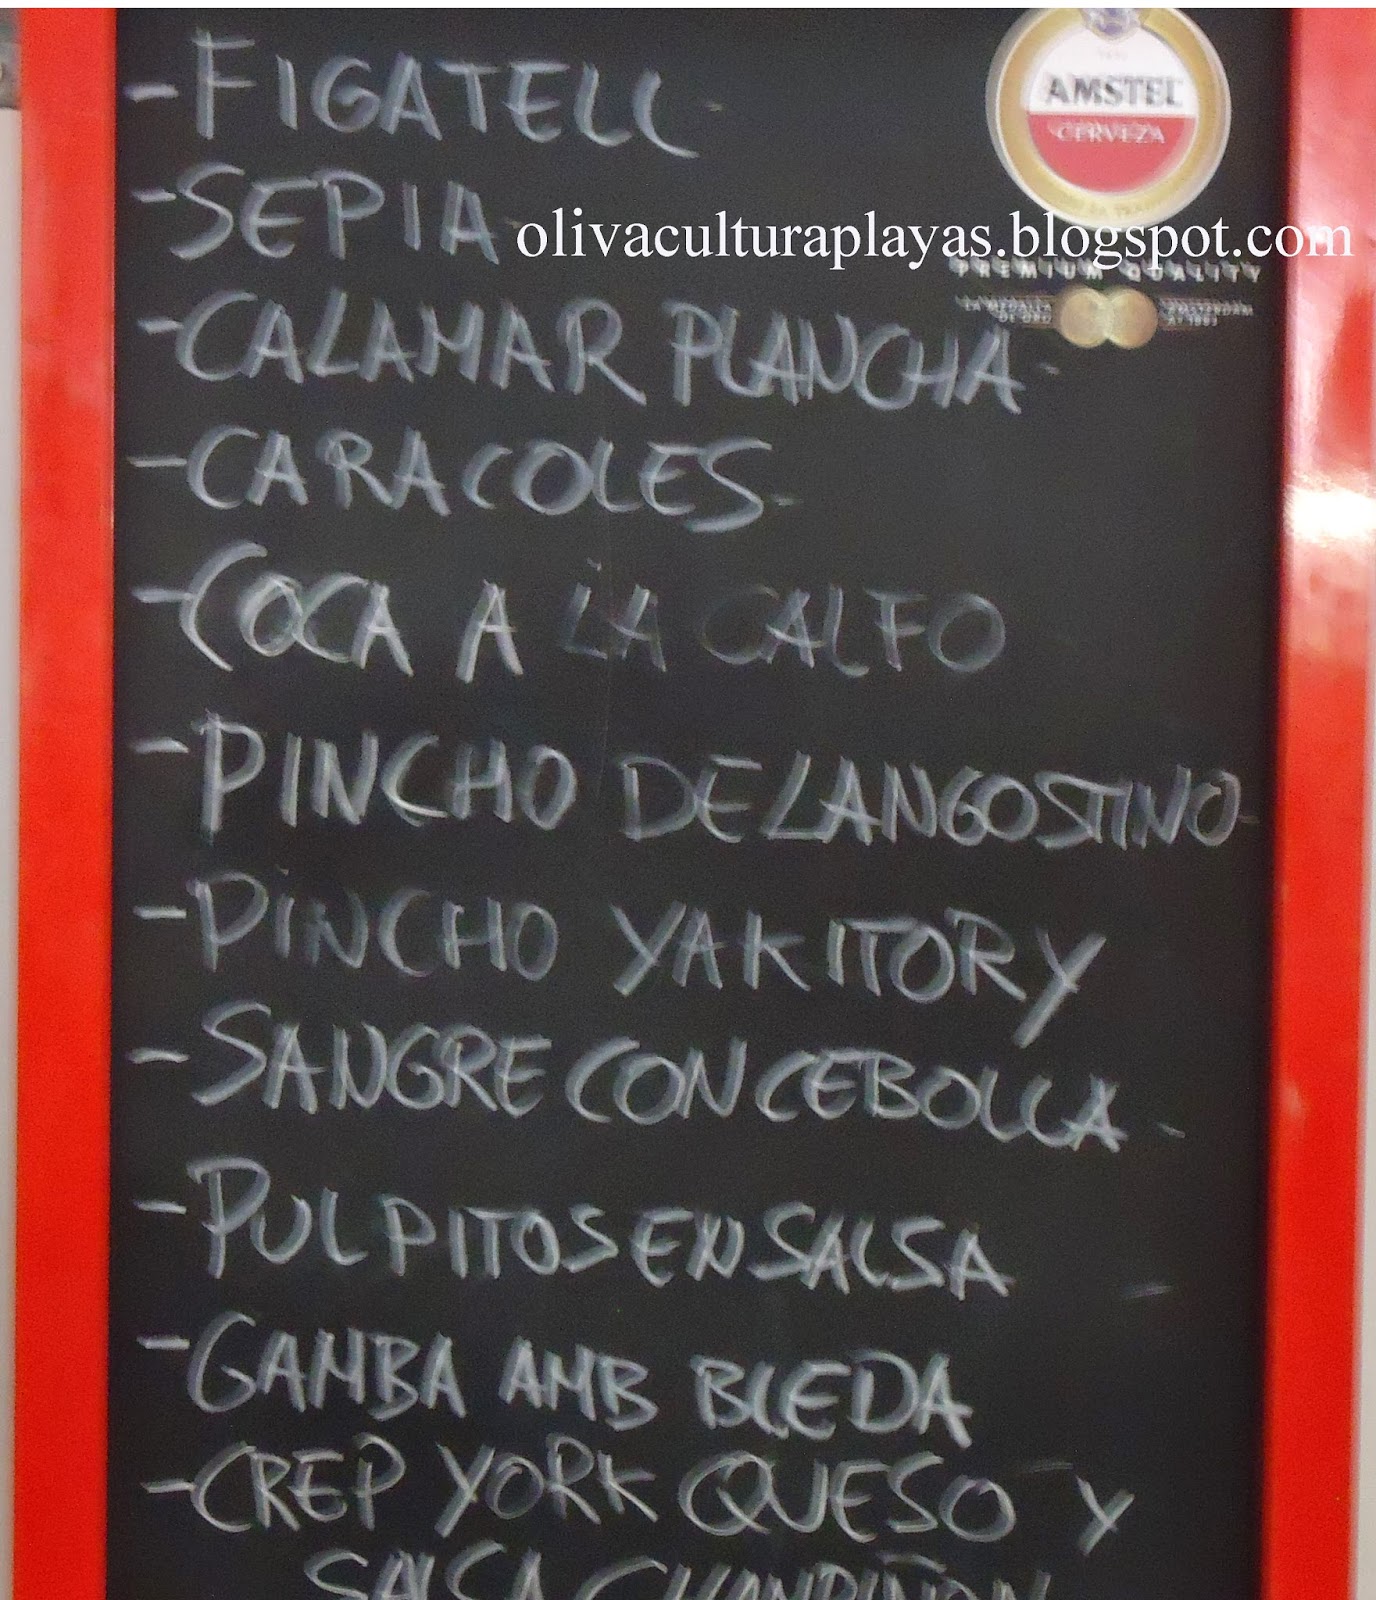 - FIGATELL -
AMSTEL
CERVEZA
- SEPIA -
olivaculturaplayas.blogspot.com
PREMIUM QUALITY
LA MEDALLA DE ORO
AMSTERDAM 1883
- CALAMAR PLANCHA -
- CARACOLES -
- COCA A LA CALFO
- PINCHO DE LANGOSTINO -
- PINCHO YAKITORY
- SANGRE CON CEBOLLA -
- PULPITOS EN SALSA
- GAMBA AMB BLEDA
- CREP YORK QUESO Y
SALSA CHAMPIÑON